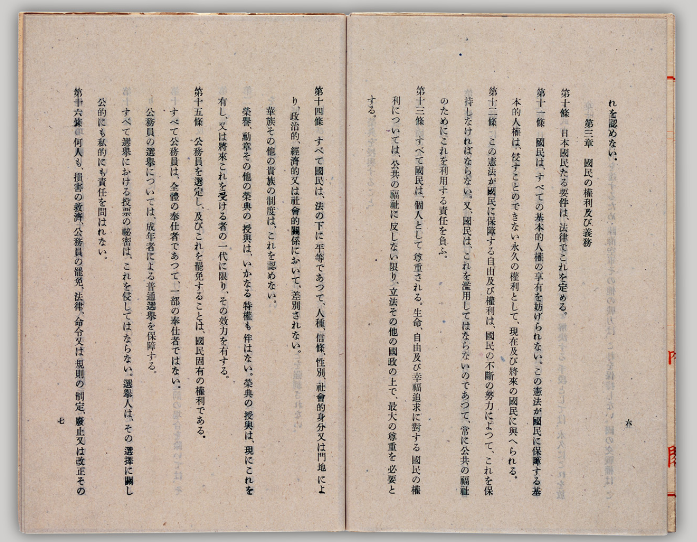 れを認めない。
第三章　國民の權利及び義務
第十條　日本國民たる要件は、法律でこれを定める。
第十一條　國民は、すべての基本的人權の享有を妨げられない。この憲法が國民に保障する基
本的人權は、侵すことのできない永久の權利として、現在及び將來の國民に與へられる。
第十二條　この憲法が國民に保障する自由及び權利は、國民の不斷の努力によつて、これを保
持しなければならない。又、國民は、これを濫用してはならないのであつて、常に公共の福祉
のためにこれを利用する責任を負ふ。
第十三條　すべて國民は、個人として尊重される。生命、自由及び幸福追求に對する國民の權
利については、公共の福祉に反しない限り、立法その他の國政の上で、最大の尊重を必要と
する。
六
第十四條　すべて國民は、法の下に平等であつて、人種、信條、性別、社會的身分又は門地によ
り、政治的、經濟的又は社會的關係において、差別されない。
華族その他の貴族の制度は、これを認めない。
榮譽、勳章その他の榮典の授與は、いかなる特權も伴はない。榮典の授與は、現にこれを
有し、又は將來これを受ける者の一代に限り、その效力を有する。
第十五條　公務員を選定し、及びこれを罷免することは、國民固有の權利である。
すべて公務員は、全體の奉仕者であつて、一部の奉仕者ではない。
公務員の選擧については、成年者による普通選擧を保障する。
すべて選擧における投票の祕密は、これを侵してはならない。選擧人は、その選擇に關し
公的にも私的にも責任を問はれない。
第十六條　何人も、損害の救濟、公務員の罷免、法律、命令又は規則の制定、廢止又は改正その
七